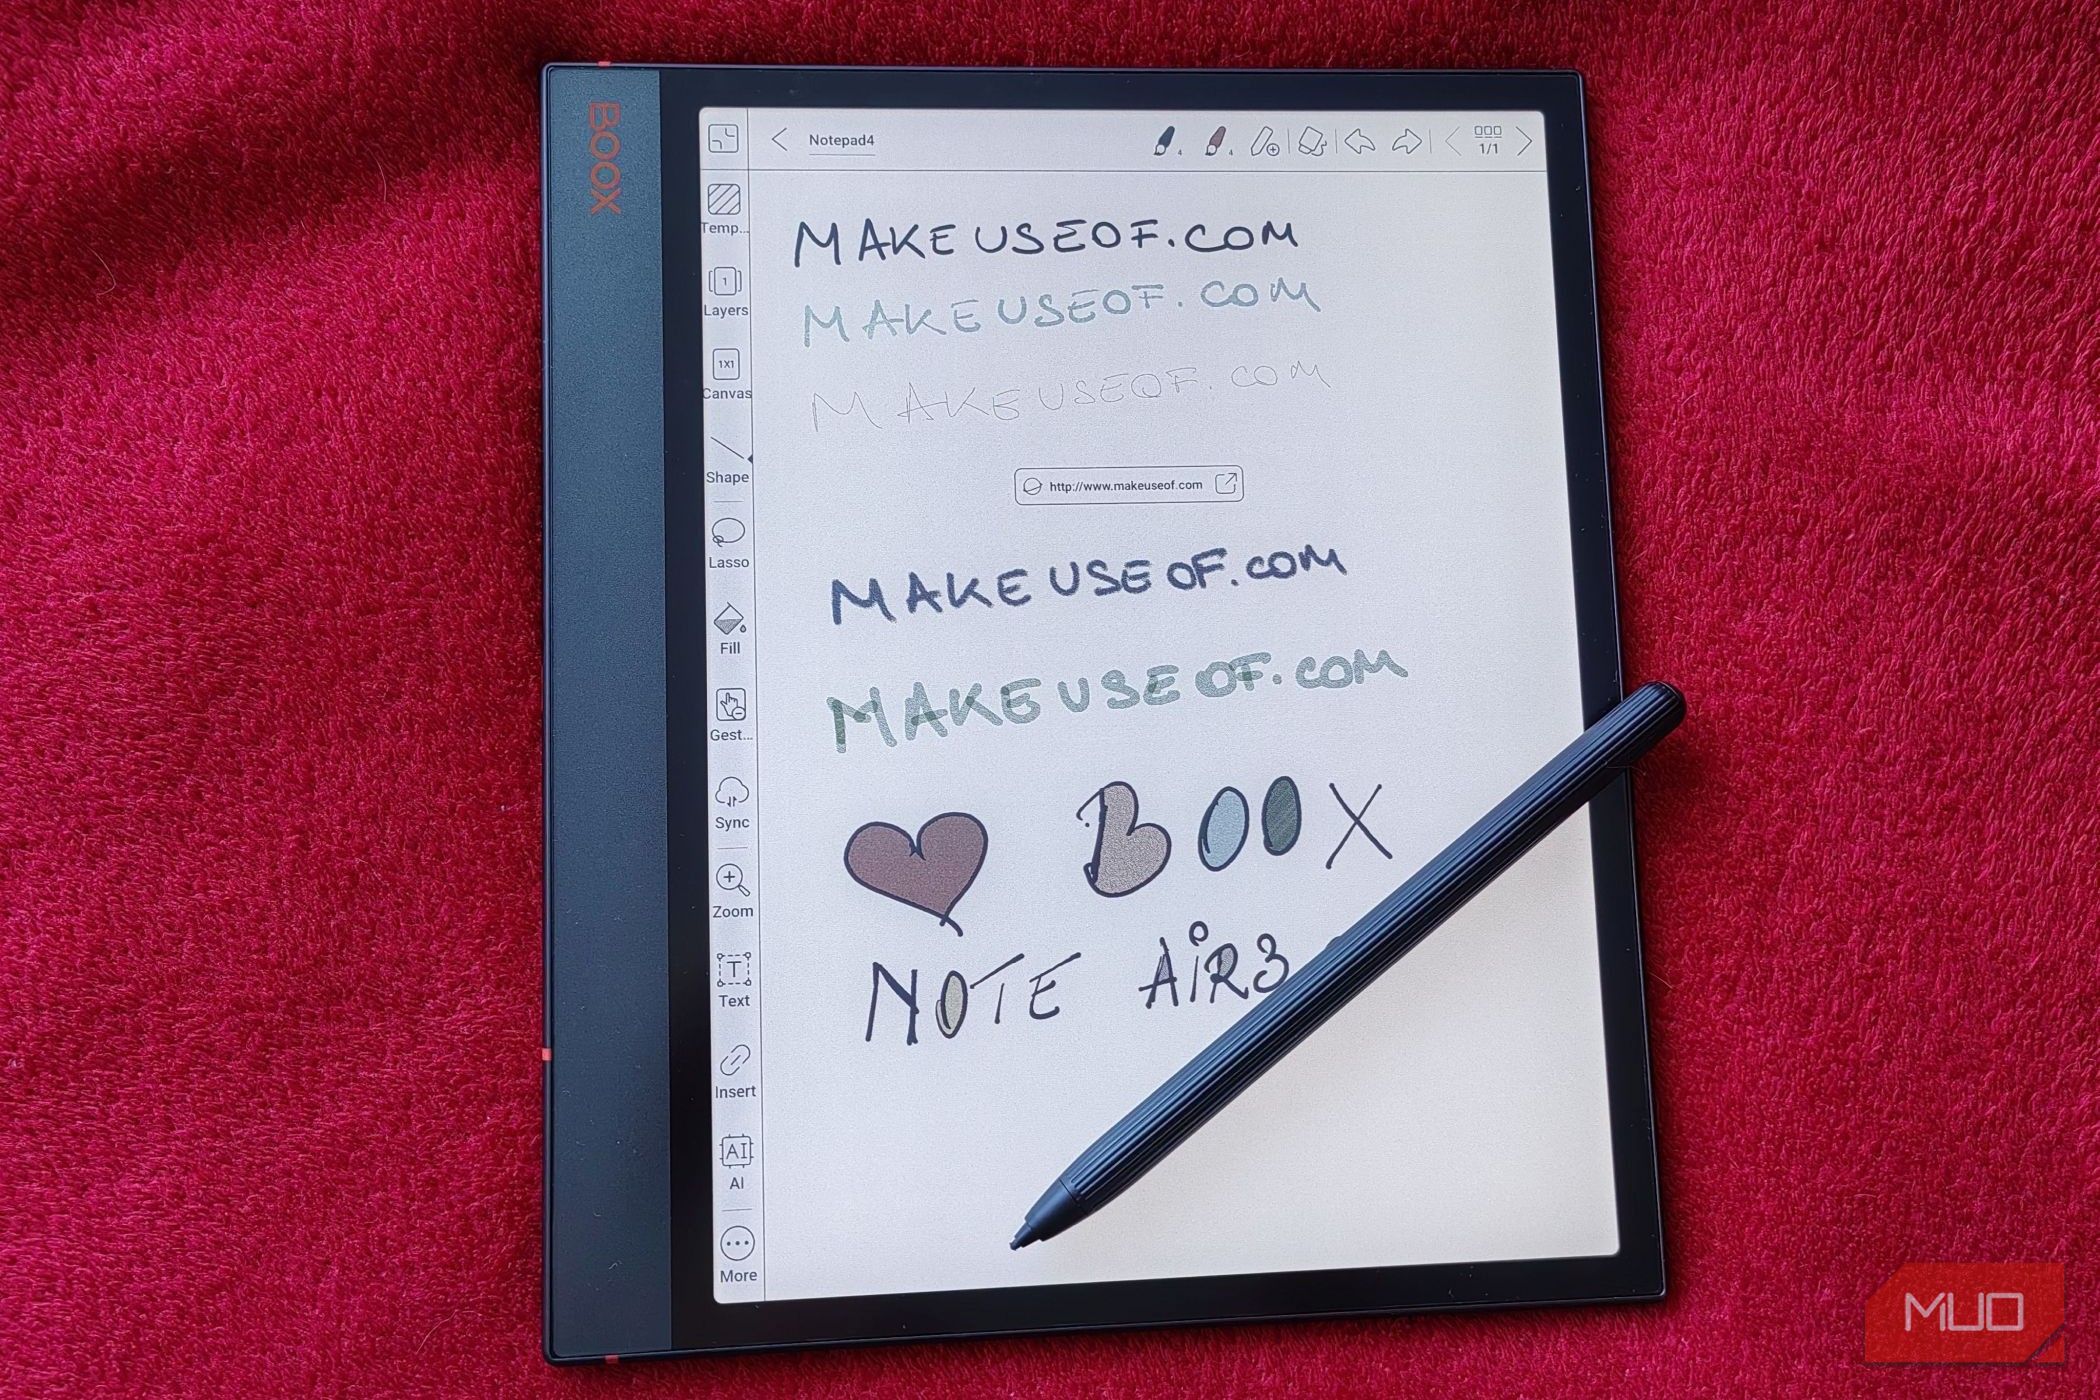 BOOX
Notepad4
4
4
1/1
Temp...
1
Layers
1X1
Canvas
Shape
Lasso
Fill
Gest...
Sync
Zoom
T
Text
Insert
AI
AI
More
MAKEUSEOF.COM
MAKEUSEOF.COM
MAKEUSEOF.COM
http://www.makeuseof.com
MAKEUSEOF.COM
MAKEUSEOF.COM
BOOX
NOTE AiR3
MUO